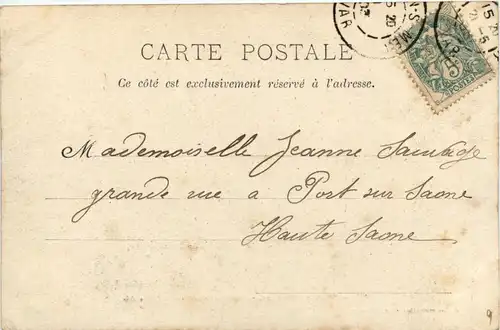 CARTE POSTALE
Ce côté est exclusivement réservé à l'adresse.
Mademoiselle Jeanne Sauvage
grande rue a Port sur Saone
Haute Saone